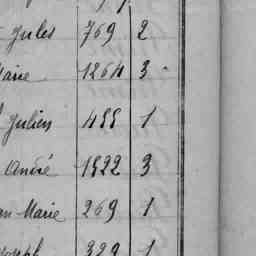 Jules 769 2
Marie 1264 3
Julien 455 1
André 1522 3
an-Marie 269 1
Joseph 329 1